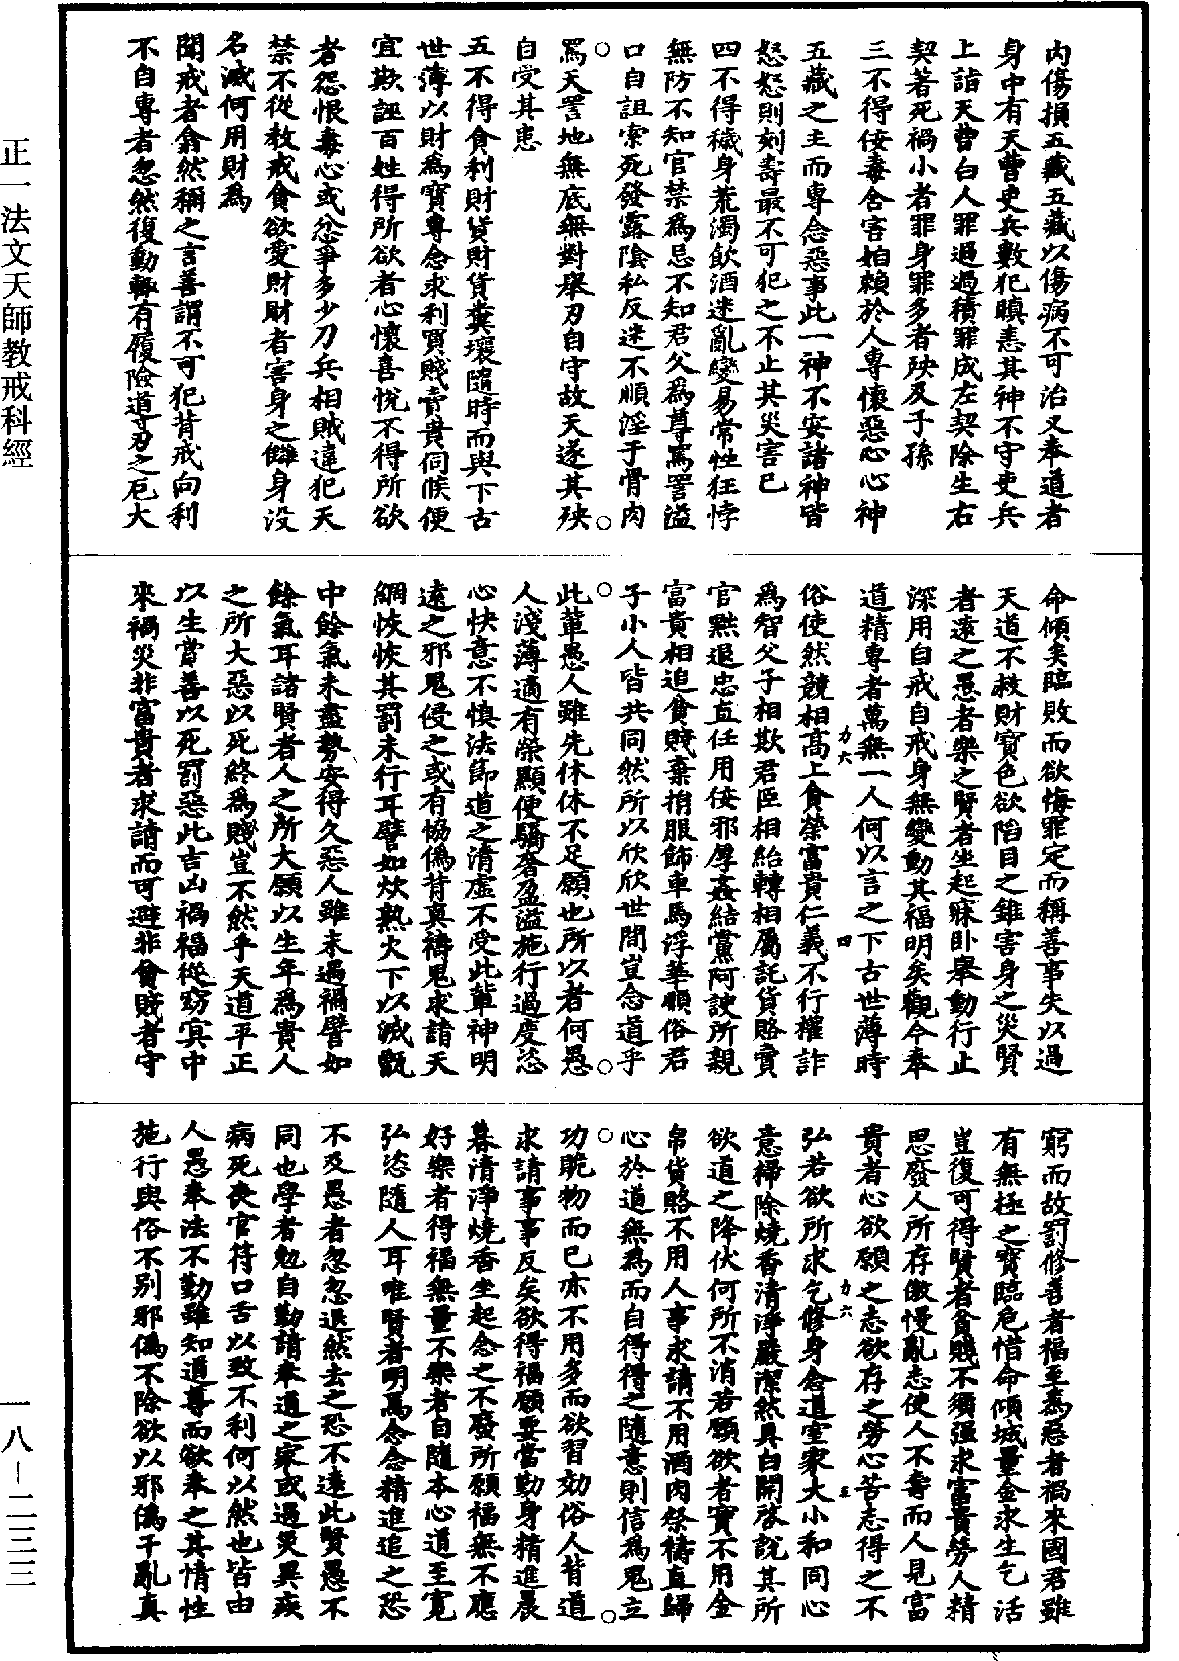 內傷損五藏五藏以傷病不可治又奉道者
身中有天曹吏兵數犯瞋恚其神不守吏兵
上詣天曹白人罪過過積罪成左契除生右
契著死禍小者罪身罪多者殃及子孫
三不得佞毒含害妬賴於人專懷惡心心神
五藏之主而專念惡事此一神不安諸神皆
怒怒則刻壽最不可犯之不止其災害已
四不得穢身荒濁飲酒迷亂變易常性狂悖
無防不知官禁為忌不知君父為尊罵詈溢
口自詛索死發露陰私反迷不順淫于骨肉
罵天詈地無底無對舉刃自守故天遂其殃
自受其患
五不得貪利財貨財貨糞壤隨時而與下古
世薄以財為寶專念求利買賤賣貴伺候便
宜欺誣百姓得所欲者心懷喜悅不得所欲
者怨恨毒心或忿爭多少刀兵相賊違犯天
禁不從教戒貪欲愛財財者害身之讎身沒
名滅何用財為
聞戒者翕然稱之言善謂不可犯背戒向利
不自專者忽然復動輒有履險導刃之厄大
命傾矣臨敗而欲悔罪定而稱善事失以過
天道不赦財寶色欲陷目之錐害身之災賢
者遠之愚者樂之賢者坐起寐臥舉動行止
深用自戒自戒身無變動其福明矣觀今奉
道精專者萬無一人何以言之下古世薄時
俗使然競相高上貪榮富貴仁義不行權詐
為智父子相欺君臣相紿轉相屬託貨賂賣
官黜退忠直任用佞邪厚姦結黨阿諛所親
富貴相追貪賤棄捐服飾車馬浮華順俗君
子小人皆共同然所以欣欣世間豈念道乎
此輩愚人雖先休休不足願也所以者何愚
人淺薄適有榮顯便驕奢盈溢施行過度恣
心快意不慎法節道之清虛不受此輩神明
遠之邪鬼侵之或有恊偽背真禱鬼求請天
網恢恢其罰未行耳譬如炊熟火下以滅甑
中餘氣未盡勢安得久惡人雖未遇禍譬如
餘氣耳諸賢者人之所大願以生年為貴人
之所大惡以死終為賤豈不然乎天道平正
以生賞善以死罰惡此吉凶禍福從窈冥中
來禍災非富貴者求請而可避非會賤者守
窮而故罰修善者福至為惡者禍來國君雖
有無極之寶臨危惜命傾城量金求生乞活
豈復可得賢者貪賤不須強求富貴勞人精
思發人所存傲慢亂志使人不壽而人見富
貴者心欲願之志欲存之勞心苦志得之不
弘若欲所求乞修身念道室家大小和同心
意掃除燒香清淨嚴潔然具白開啓說其所
欲道之降伏何所不消若願欲者實不用金
帛貨賂不用人事求請不用酒肉祭禱直歸
心於道無為而自得得之隨意則信為鬼立
功賧物而已亦不用多而欲習効俗人背道
求請事事反矣欲得福願要當勤身精進晨
暮清淨燒香坐起念之不廢所願福無不應
好樂者得福無量不樂者自隨本心道至寬
弘恣隨人耳唯賢者明焉念念精進追之恐
不及愚者忽忽退然去之恐不遠此賢愚不
同也學者勉自勤請奉道之家或遇災異疾
病死喪官符口舌以致不利何以然也皆由
人愚奉法不勤雖知道尊而欲奉之其情性
施行與俗不別邪偽不除欲以邪偽干亂真
力六
四
力六
五
正一法文天師教戒科經
一八－二三三